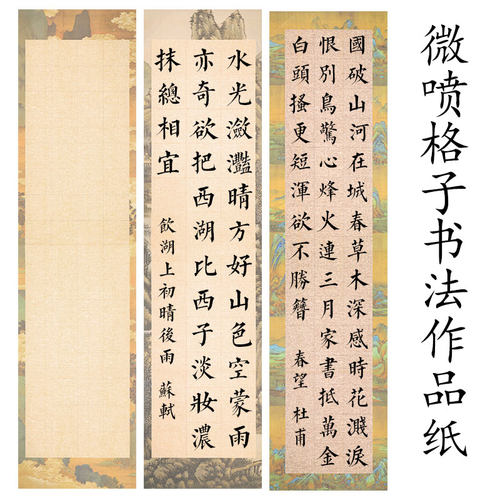 微喷格子书法作品纸
國破山河在城春草木深感時花濺淚
恨別鳥驚心烽火連三月家書抵萬金
白頭搔更短渾欲不勝簪 春望 杜甫
水光瀲灩晴方好山色空蒙雨
亦奇欲把西湖比西子淡妝濃
抹總相宜 飲湖上初晴後雨 蘇軾